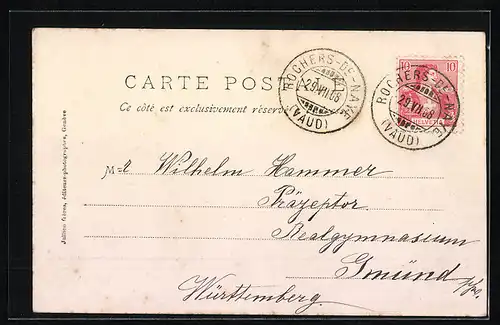 CARTE POSTALE
Ce côté est exclusivement réservé
ROCHERS-DE-NAYE
29.VII.08
(VAUD)
10 10
ROCHERS-DE-NAYE
29.VII.08
(VAUD)
HELVETIA
Jullien frères, éditeurs-photographes, Genève
M-r Wilhelm Hammer
Präzeptor
Realgymnasium
Gmünd
Württemberg.